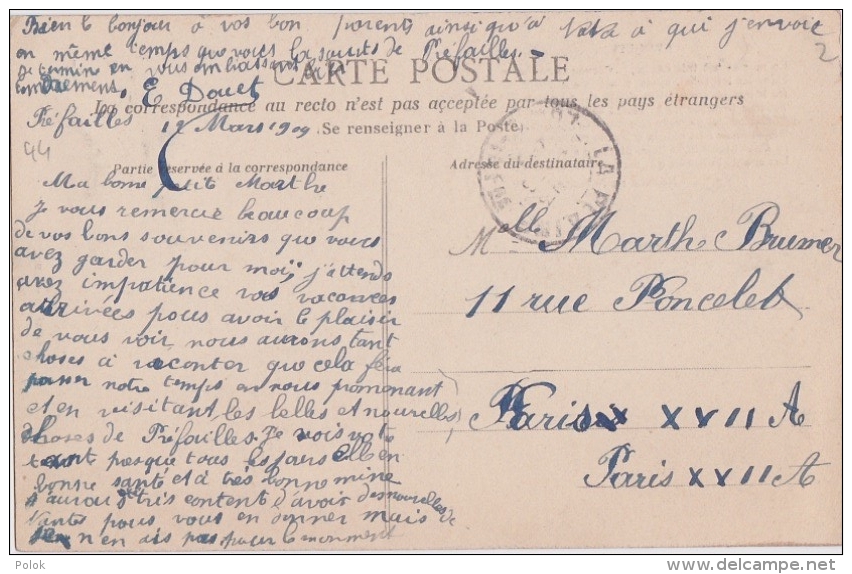 Bien le bonjour à vos bon parents ainsi qu'à Nata à qui j'envoie
en même temps que vous les saluts de Préfailles.
Je termin en vous embrassant bien
tendremens, E Douet
CARTE POSTALE
La correspondance au recto n'est pas acceptée par tous les pays étrangers
Préfailles 12 Mars 1909
Se renseigner à la Poste
44
2
Partie réservée à la correspondance
Ma bonne petite Marthe
Je vous remercie beaucoup
de vos bons souvenirs que vous
avez garder pour moi, j'attends
avez impatience vos vacances
arrivées pous avoir le plaisir
de vous voir nous aurons tant
choses à raconter que cela fera
passer notre temps en nous promenant
et en visitant les belles et nouvelles
choses de Préfailles. Je vois votre
tante presque tous les jours elle en
bonne santé et à très bonne mine
J'aurai été très content d'avoir des nouvelles de
Nantes pous vous en donner mais
je n'en ais pas pour le moment
Adresse du destinataire
LA PL
Melle Marthe Brumer
11 rue Poncelet
Paris XVII A
Paris XVII A
Polok
delcampe.net